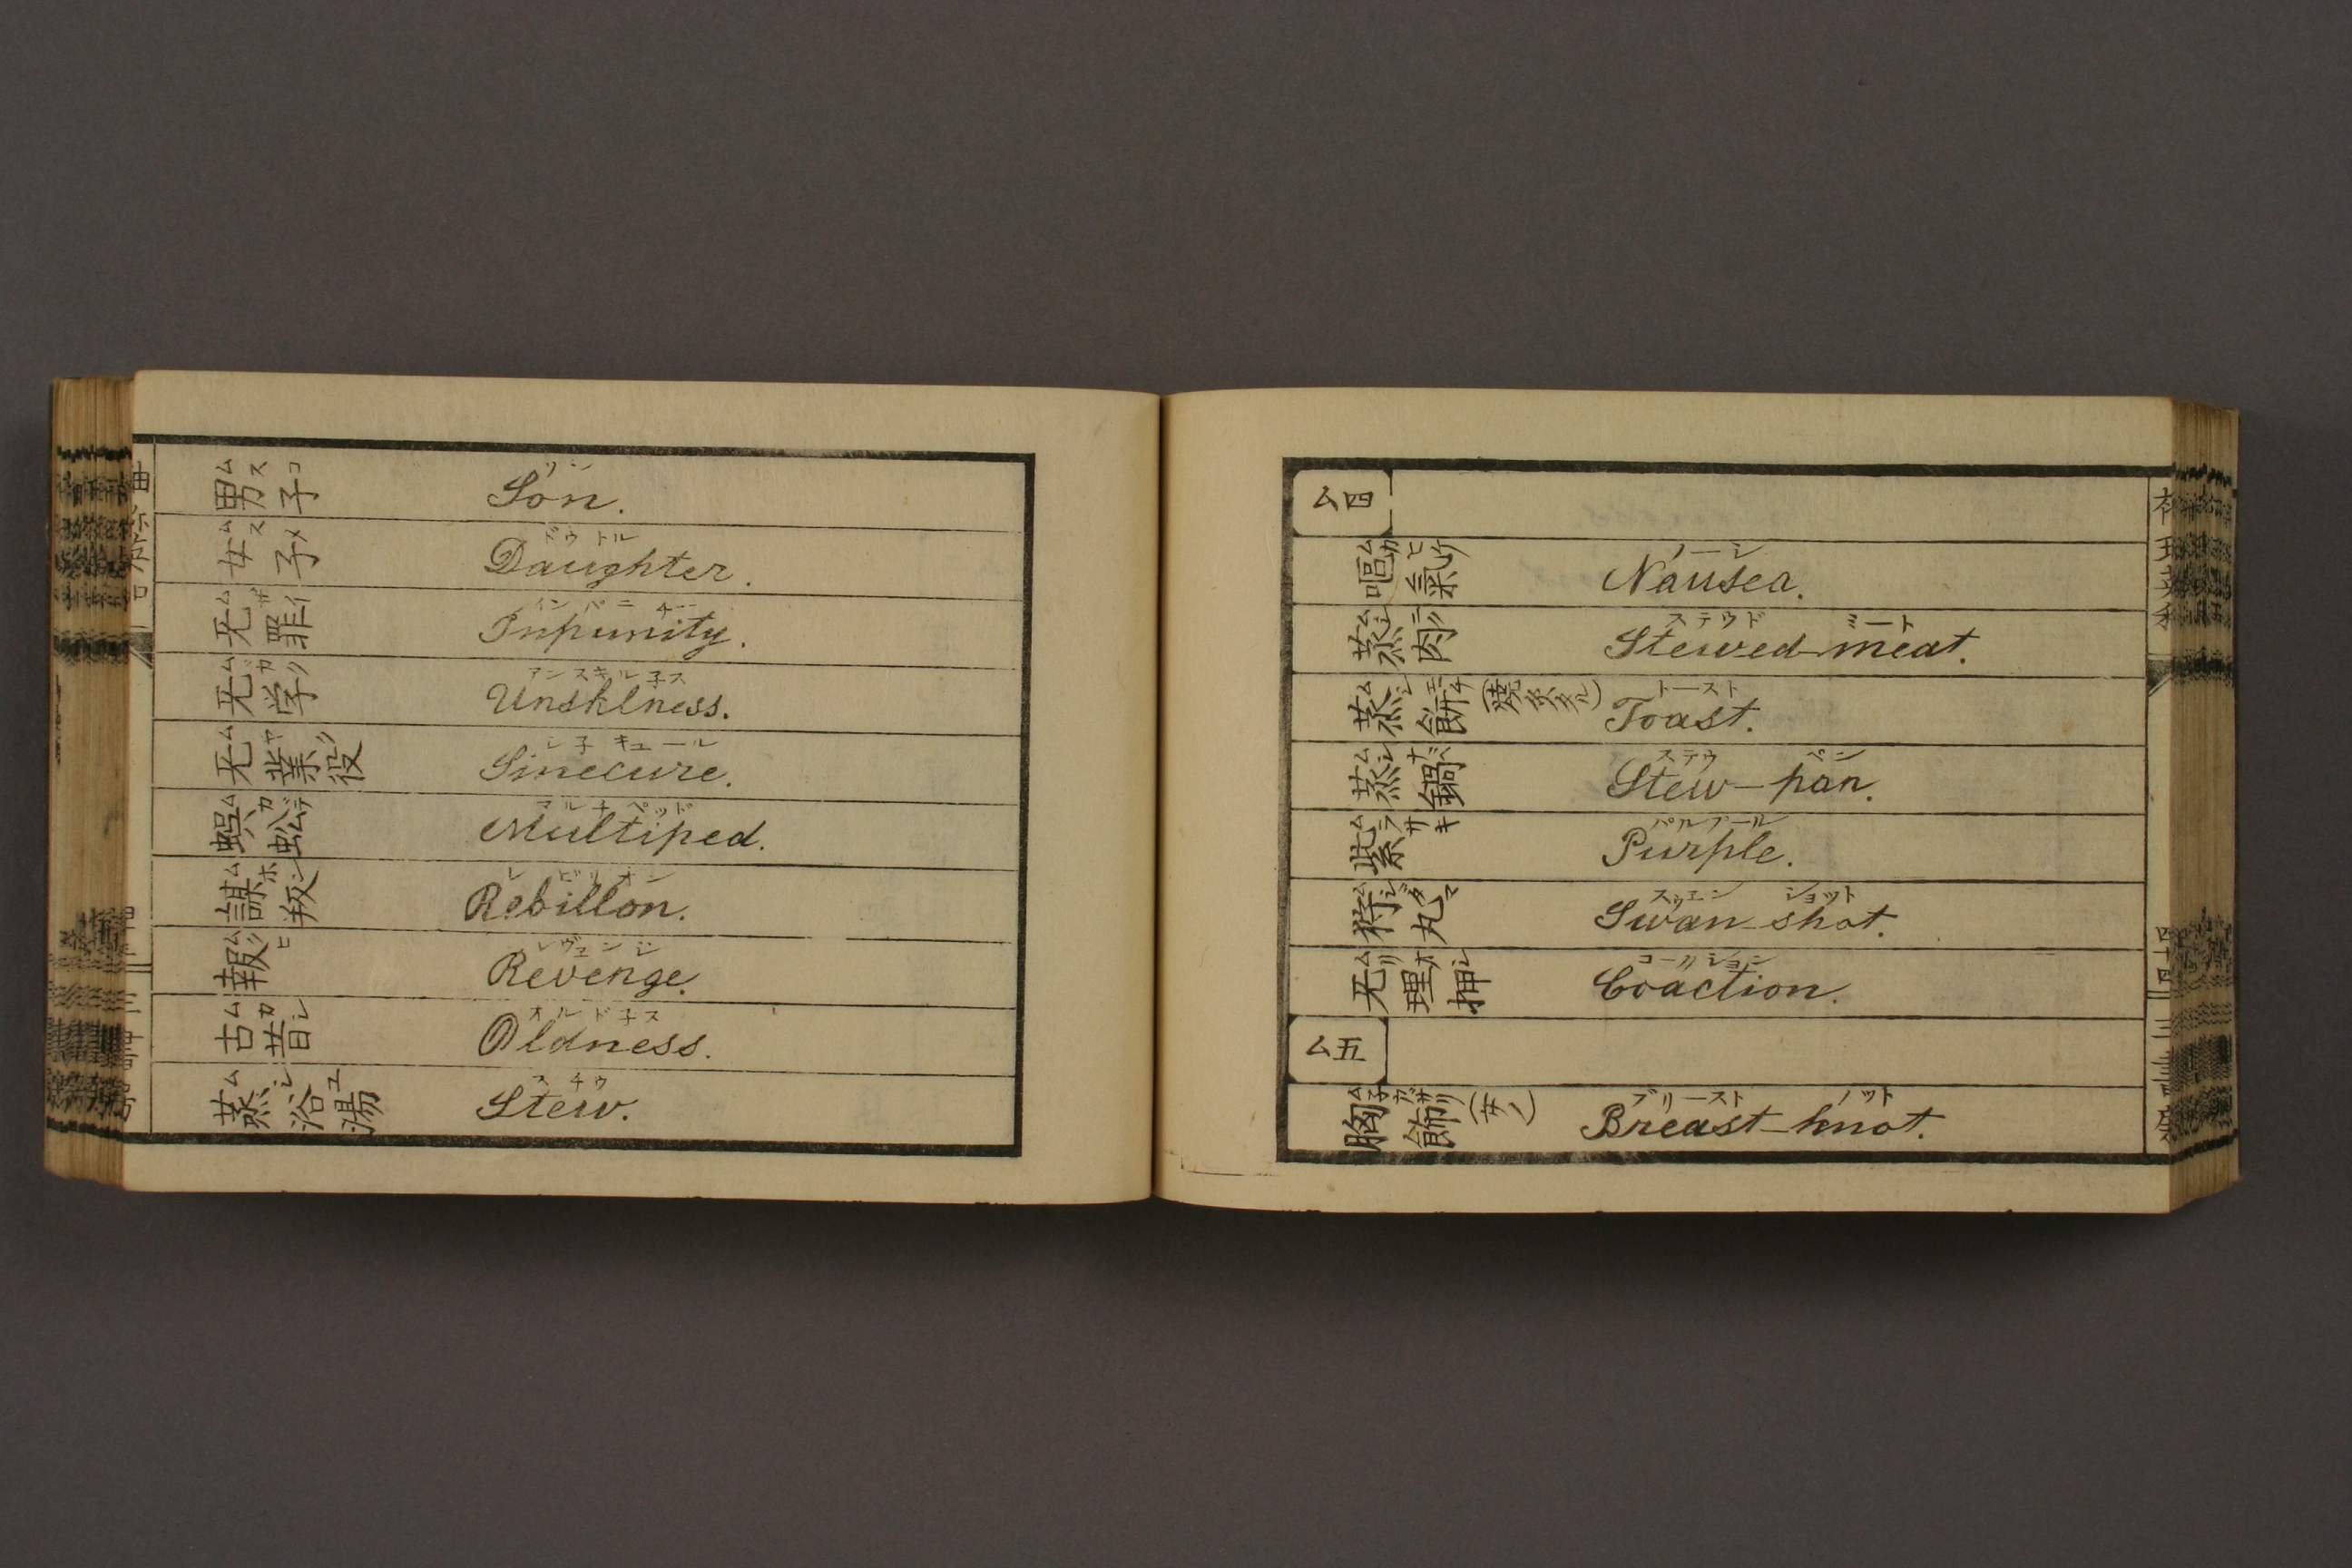 男子 ムスコ ソン Son.
女子 ムスメ ドウトル Daughter.
无罪 ムザイ インパニチー Inpunity.
无学 ムガク アンスキル子ス Unsklness.
无業役 シ子キュール Sinecure.
蜈蚣 ムカデ マルチペッド Multiped.
謀叛 ムホン レビリオン Rebillon.
報 ムクヒ レヴェンジ Revenge.
古昔 ムカシ オルド子ス Oldness.
蒸浴湯 ムシユ スチウ Stew.
ム四
嘔氣 ノーシ Nausea.
蒸肉 ムシニク ステウド ミート Stewed meat.
蒸餅 トースト Toast.
蒸鍋 ムシナベ ステウ ペン Stew-pan.
紫 ムラサキ パルプール Purple.
スウェン ショット Swan-shot.
无理押 ムリオシ コークション Coaction.
ム五
胸飾 ム子カザリ (女ノ) ブリースト ノット Breast-knot.